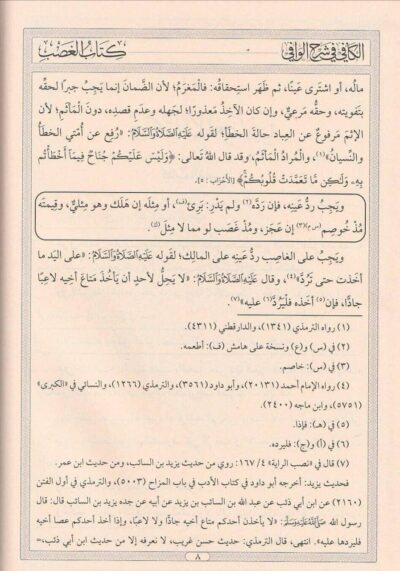 الكافي في شرح الوافي
كتاب الغصب
ماله، أو اشترى عينًا، ثم ظهر استحقاقه: فالمغرَمُ؛ لأن الضمانَ إنما يَجِبُ جبرًا لحقِّه
بتفويته، وحقُّه مرعيٌّ، وإن كان الآخِذُ معذورًا؛ لجهله وعدمِ قصدِه، دونَ المأثمِ؛ لأن
الإثمَ مَرفوعٌ عن العِباد حالةَ الخطأِ؛ لقوله عَلَيْهِ الصَّلَاةُ وَالسَّلَامُ: «رُفِع عن أُمَّتي الخطأُ
والنِّسيانُ»(١)، والمُرادُ المأثمُ، وقد قال اللهُ تعالى: ﴿وَلَيْسَ عَلَيْكُمْ جُنَاحٌ فِيمَآ أَخْطَأْتُم
بِهِۦ وَلَٰكِن مَّا تَعَمَّدَتْ قُلُوبُكُمْ﴾ [الأحزاب: ٥].
ويَجِبُ ردُّ عَينِه، فإن رَدَّه(٢) ولم يَدْرِ: بَرِئ(ف)، أو مِثلَه إن هَلَك وهو مِثليٌّ، وقيمتَه
مُذْ خُوصِم(س م)(٣) إن عَجَز، ومُذْ غَصَب لو مما لا مِثلَ(ك).
ويَجِبُ على الغاصِب ردُّ عَينِه على المالِك؛ لقوله عَلَيْهِ الصَّلَاةُ وَالسَّلَامُ: «على اليَد ما
أخذت حتى تَرُدَّ»(٤)، وقال عَلَيْهِ الصَّلَاةُ وَالسَّلَامُ: «لا يَحِلُّ لأحدٍ أن يَأخُذَ مَتاعَ أخيه لاعِبًا
جادًّا، فإن(٥) أخَذه فلْيَرُدَّ(٦) عليه»(٧).
(١) رواه الترمذي (١٣٤١)، والدارقطني (٤٣١١).
(٢) في (س) و(ع) ونسخة على هامش (ف): أطعمه.
(٣) في (س): خاصم.
(٤) رواه الإمام أحمد (٢٠١٣١)، وأبو داود (٣٥٦١)، والترمذي (١٢٦٦)، والنسائي في «الكبرى»
(٥٧٥١)، وابن ماجه (٢٤٠٠).
(٥) في (هـ): فإذا.
(٦) في (أ) و(ج): فليرده.
(٧) قال في «نصب الراية» ٤/ ١٦٧: روي من حديث يزيد بن السائب، ومن حديث ابن عمر.
فحديث يزيد: أخرجه أبو داود في كتاب الأدب في باب المزاح (٥٠٠٣)، والترمذي في أول الفتن
(٢١٦٠) عن ابن أبي ذئب عن عبد الله بن السائب بن يزيد عن أبيه عن جده يزيد بن السائب قال: قال
رسول الله ﷺ: «لا يأخذن أحدكم متاع أخيه جادًّا ولا لاعبًا، وإذا أخذ أحدكم عصا أخيه
فليردها عليه». انتهى، قال الترمذي: حديث حسن غريب، لا نعرفه إلا من حديث ابن أبي ذئب،=
٨